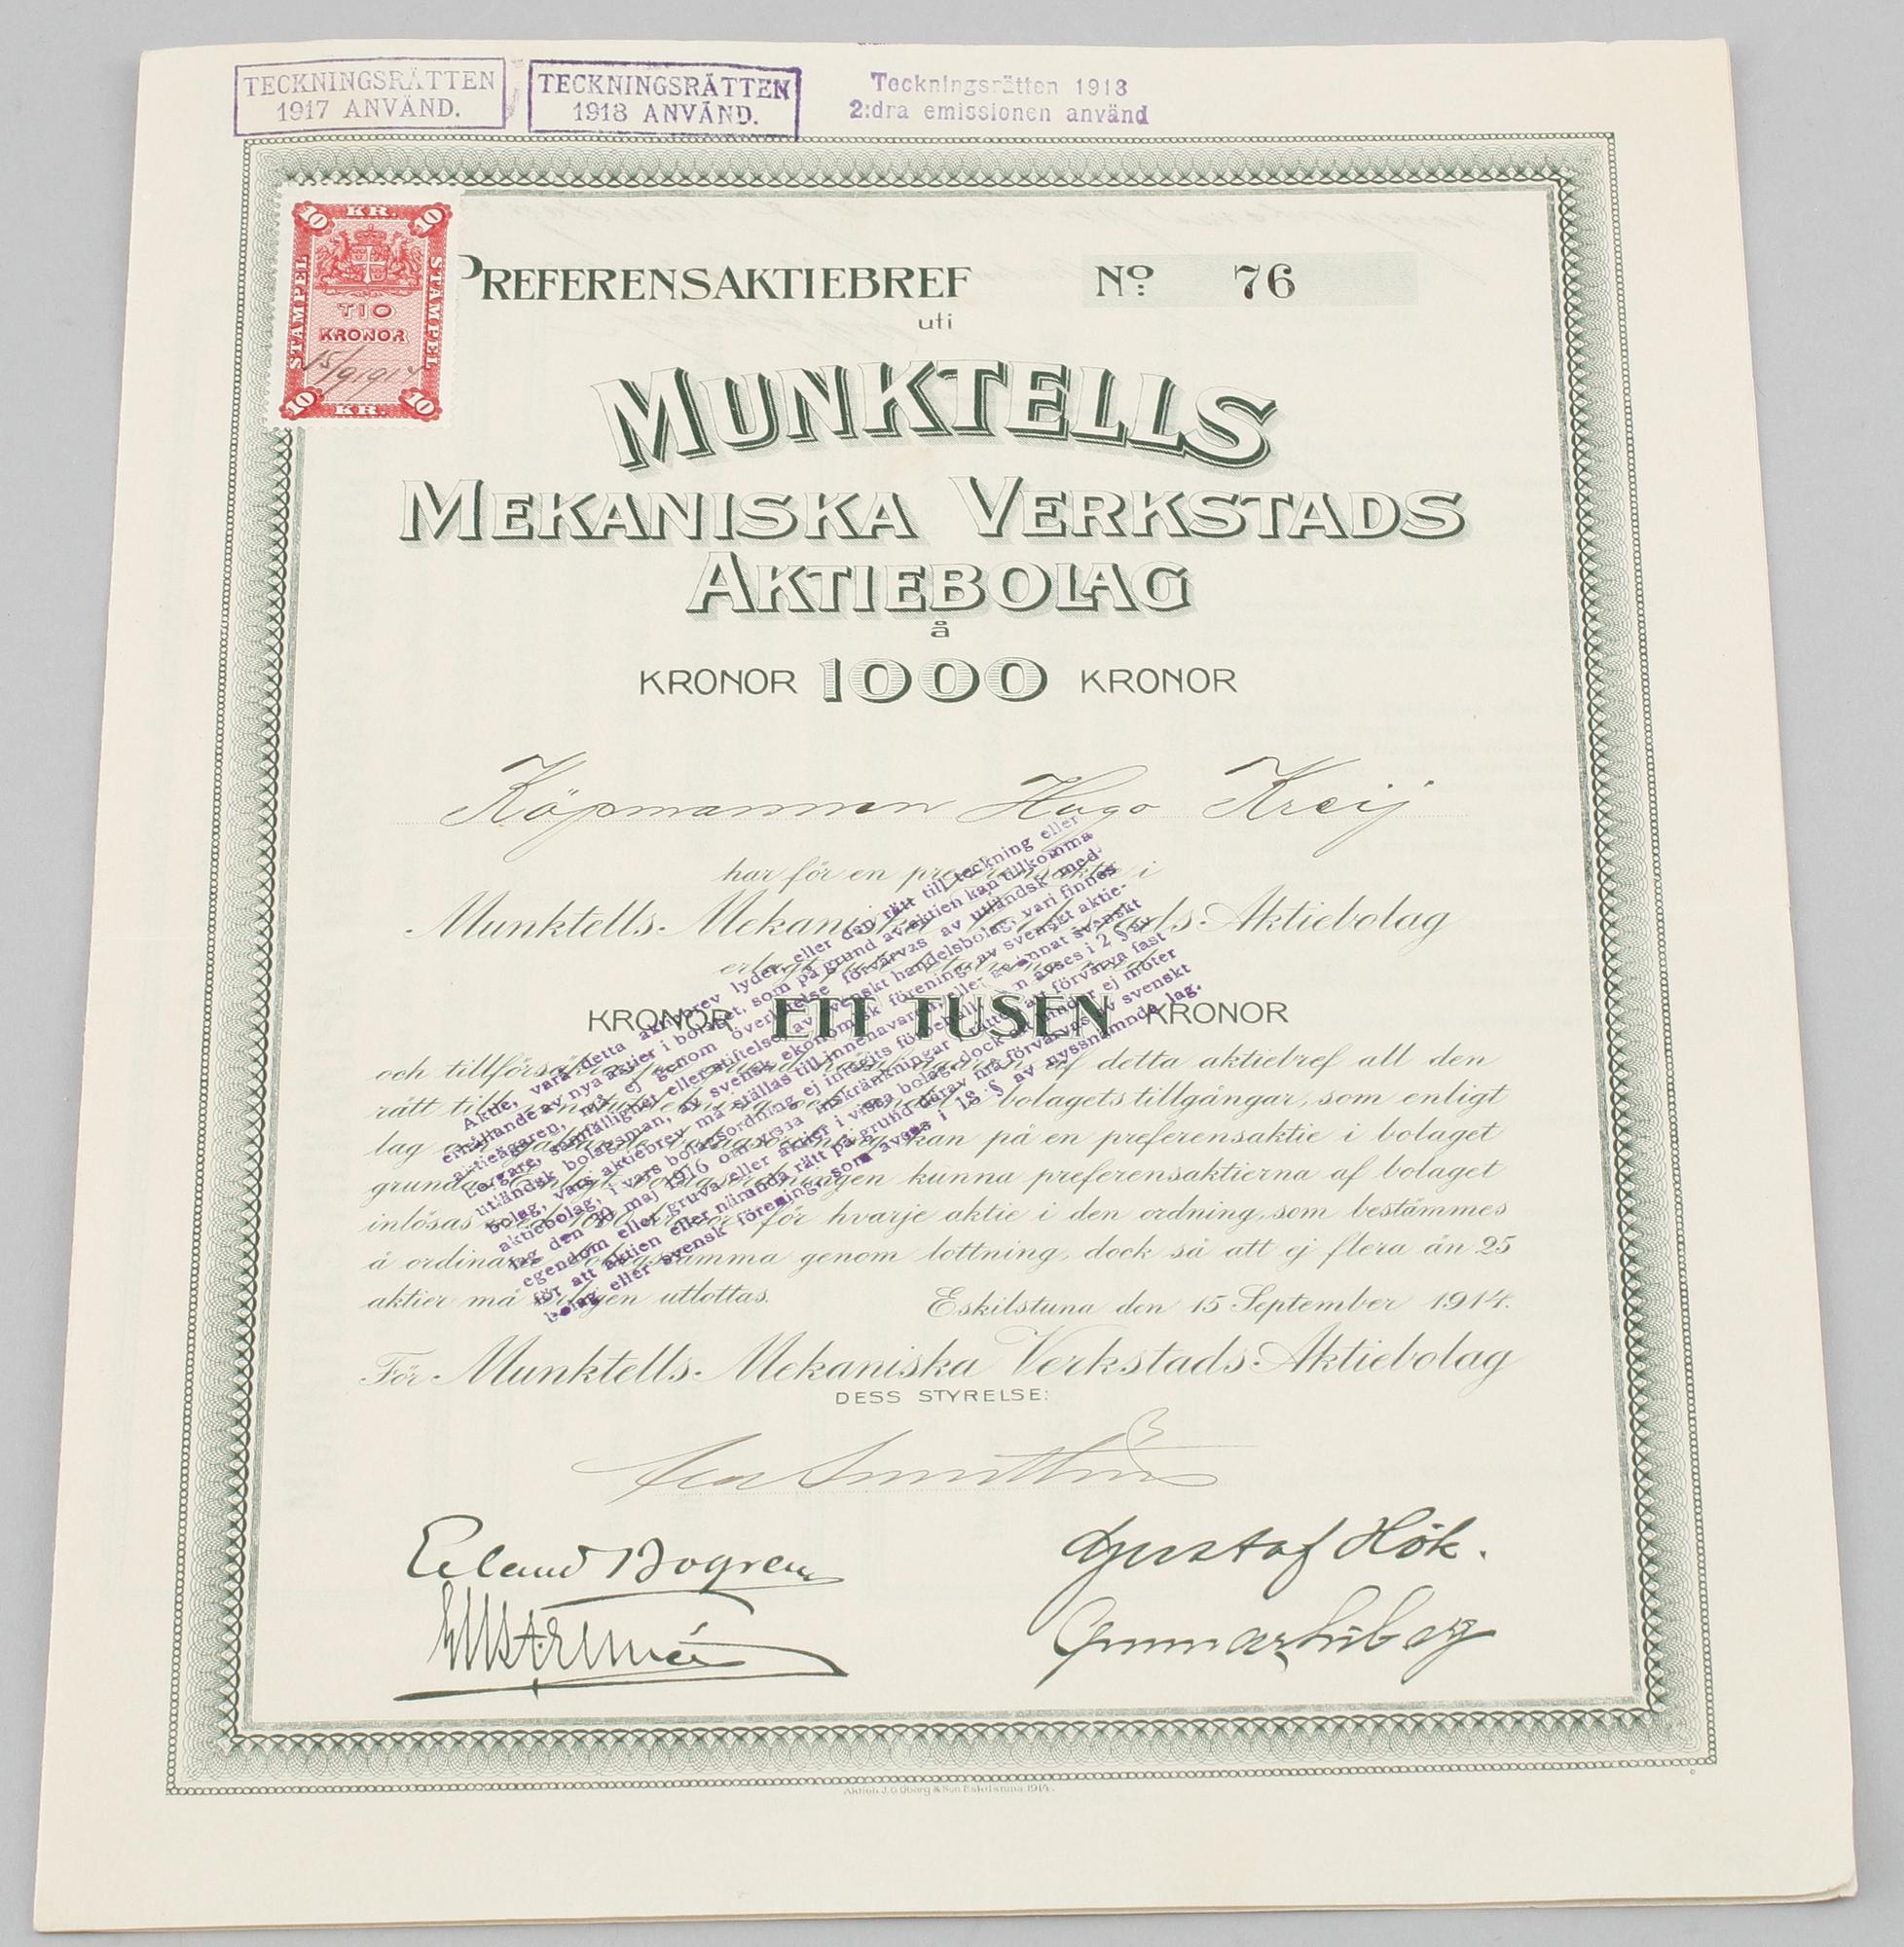 TECKNINGSRÄTTEN
1917 ANVÄND.
TECKNINGSRÄTTEN
1918 ANVÄND.
Teckningsrätten 1918
2:dra emissionen använd
10 KR. 10
STÄMPEL
STÄMPEL
TIO
KRONOR
15/9 1914
10 KR. 10
PREFERENSAKTIEBREF
No: 76
uti
MUNKTELLS
MEKANISKA VERKSTADS
AKTIEBOLAG
å
KRONOR 1000 KRONOR
Köpmannen Hugo Kreij
har för en preferensaktie i
Munktells Mekaniska Verkstads-Aktiebolag
KRONOR ETT TUSEN KRONOR
och af detta aktiebref all den
rätt till bolagets tillgångar, som enligt
lag kan på en preferensaktie i bolaget
kunna preferensaktierna af bolaget
inlösas för hvarje aktie i den ordning, som bestämmes
å ordinarie bolagsstämma genom lottning, dock så att ej flera än 25
aktier må årligen utlottas.
Eskilstuna den 15 September 1914.
För Munktells Mekaniska Verkstads-Aktiebolag
DESS STYRELSE:
Aktie, vare detta aktiebrev lyder, eller den rätt till teckning eller
erhållande av nya aktier i bolaget, som på grund av aktien kan tillkomma
aktieägaren, må ej genom överlåtelse förvärvas av utländsk med-
borgare, samfällighet eller stiftelse, av svenskt handelsbolag, vari finnes
utländsk bolagsman, av svensk ekonomisk förening, av svenskt aktie-
bolag, vars aktiebrev må ställas till innehavaren, eller av annat svenskt
aktiebolag, i vars bolagsordning ej intagits förbehåll som avses i 2 §
lag den 30 maj 1916 om vissa inskränkningar i rätten att förvärva fast
egendom eller gruva eller aktier i vissa bolag, dock att hinder ej möter
för att aktien eller nämnda rätt på grund därav må förvärvas av svenskt
bolag eller svensk förening, som avses i 18 § av nyssnämnda lag.
Erland
Gustaf Hök.
Gunnar
Aktien J. O. Öberg & Son Eskilstuna 1914.